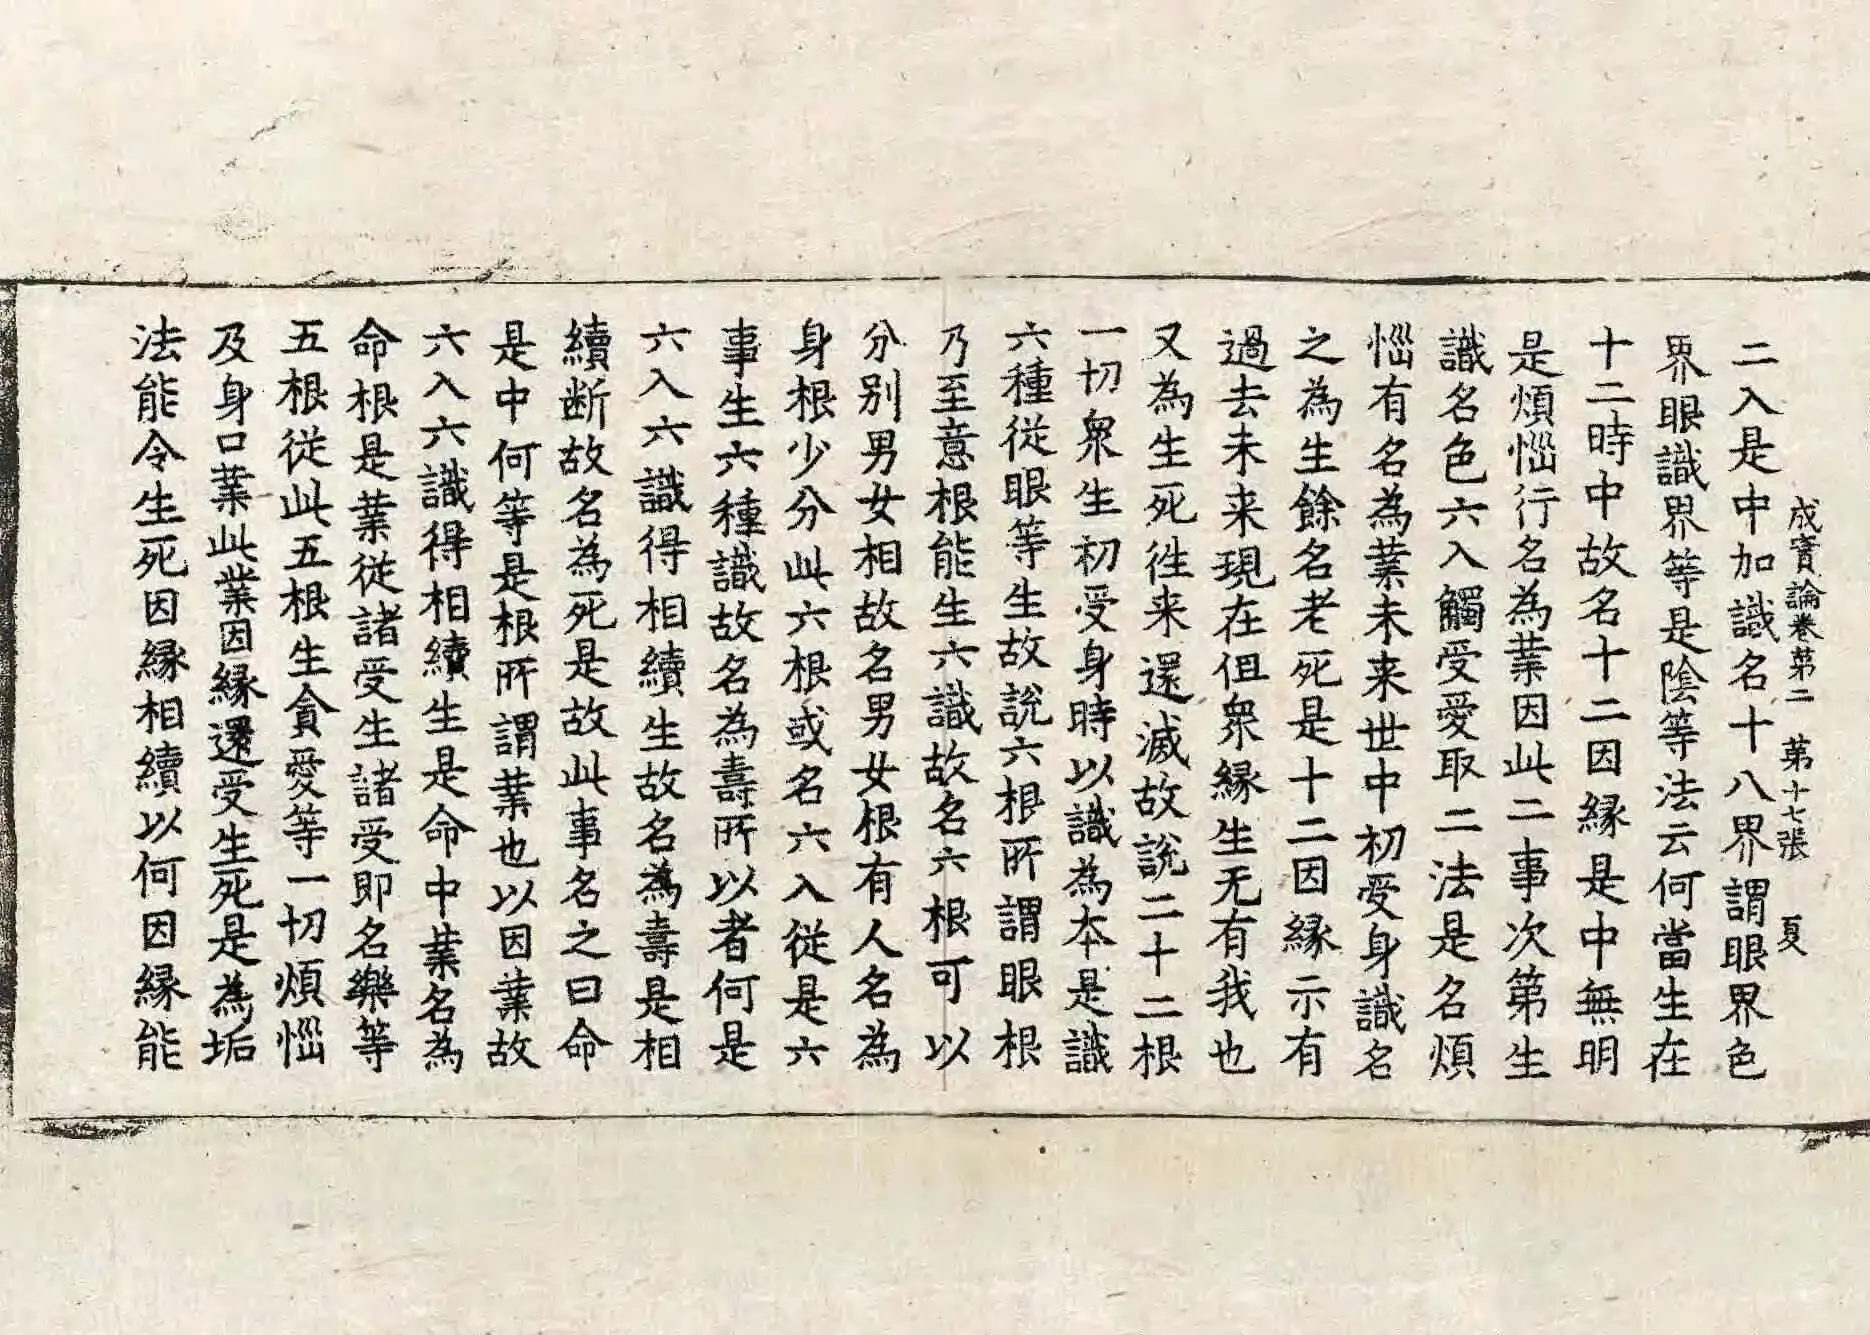 成實論卷第二　第十七張　夏
二入是中加識名十八界謂眼界色
界眼識界等是陰等法云何當生在
十二時中故名十二因縁是中無明
是煩惱行名為業因此二事次第生
識名色六入觸受愛取二法是名煩
惱有名為業未来世中初受身識名
之為生餘名老死是十二因縁示有
過去未来現在但衆縁生无有我也
又為生死徃来還滅故說二十二根
一切衆生初受身時以識為本是識
六種從眼等生故說六根所謂眼根
乃至意根能生六識故名六根可以
分别男女相故名男女根有人名為
身根少分此六根或名六入從是六
事生六種識故名為壽所以者何是
六入六識得相續生故名為壽是相
續断故名為死是故此事名之曰命
是中何等是根所謂業也以因業故
六入六識得相續生是命中業名為
命根是業從諸受生諸受即名樂等
五根從此五根生貪愛等一切煩惱
及身口業此業因縁還受生死是為垢
法能令生死因縁相續以何因縁能